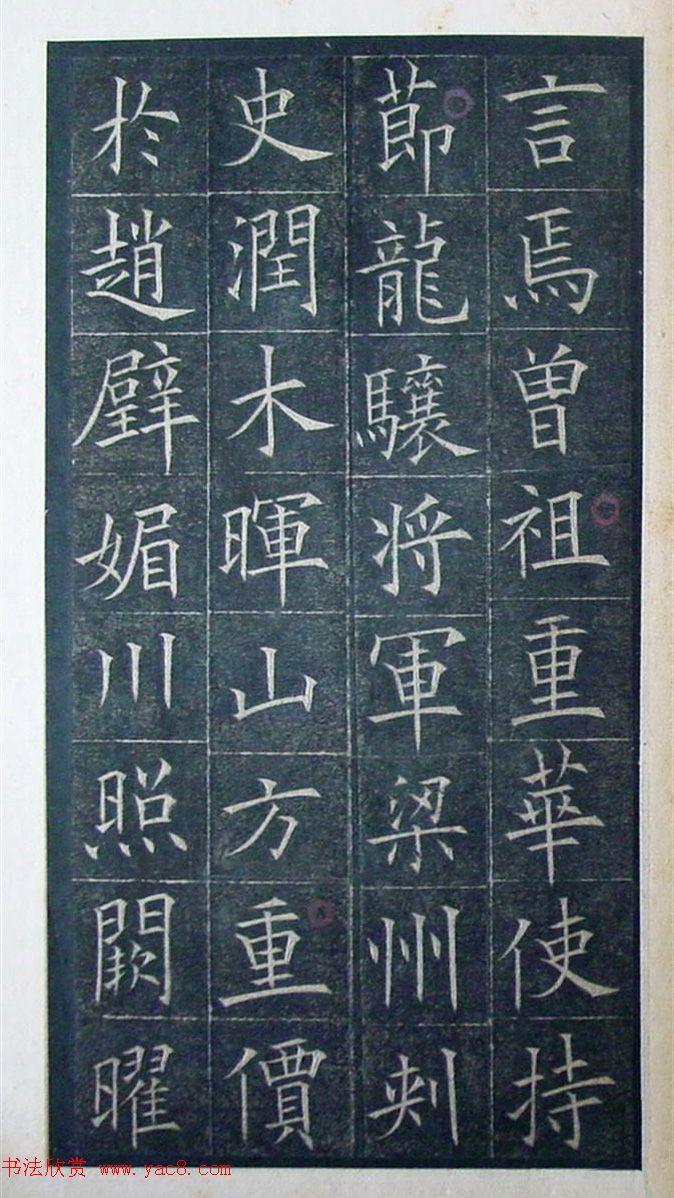 言焉曾祖重華使持
節龍驤将軍梁州刾
史潤木暉山方重價
於趙璧媚川照闕曜
书法欣赏 www.yac8.com